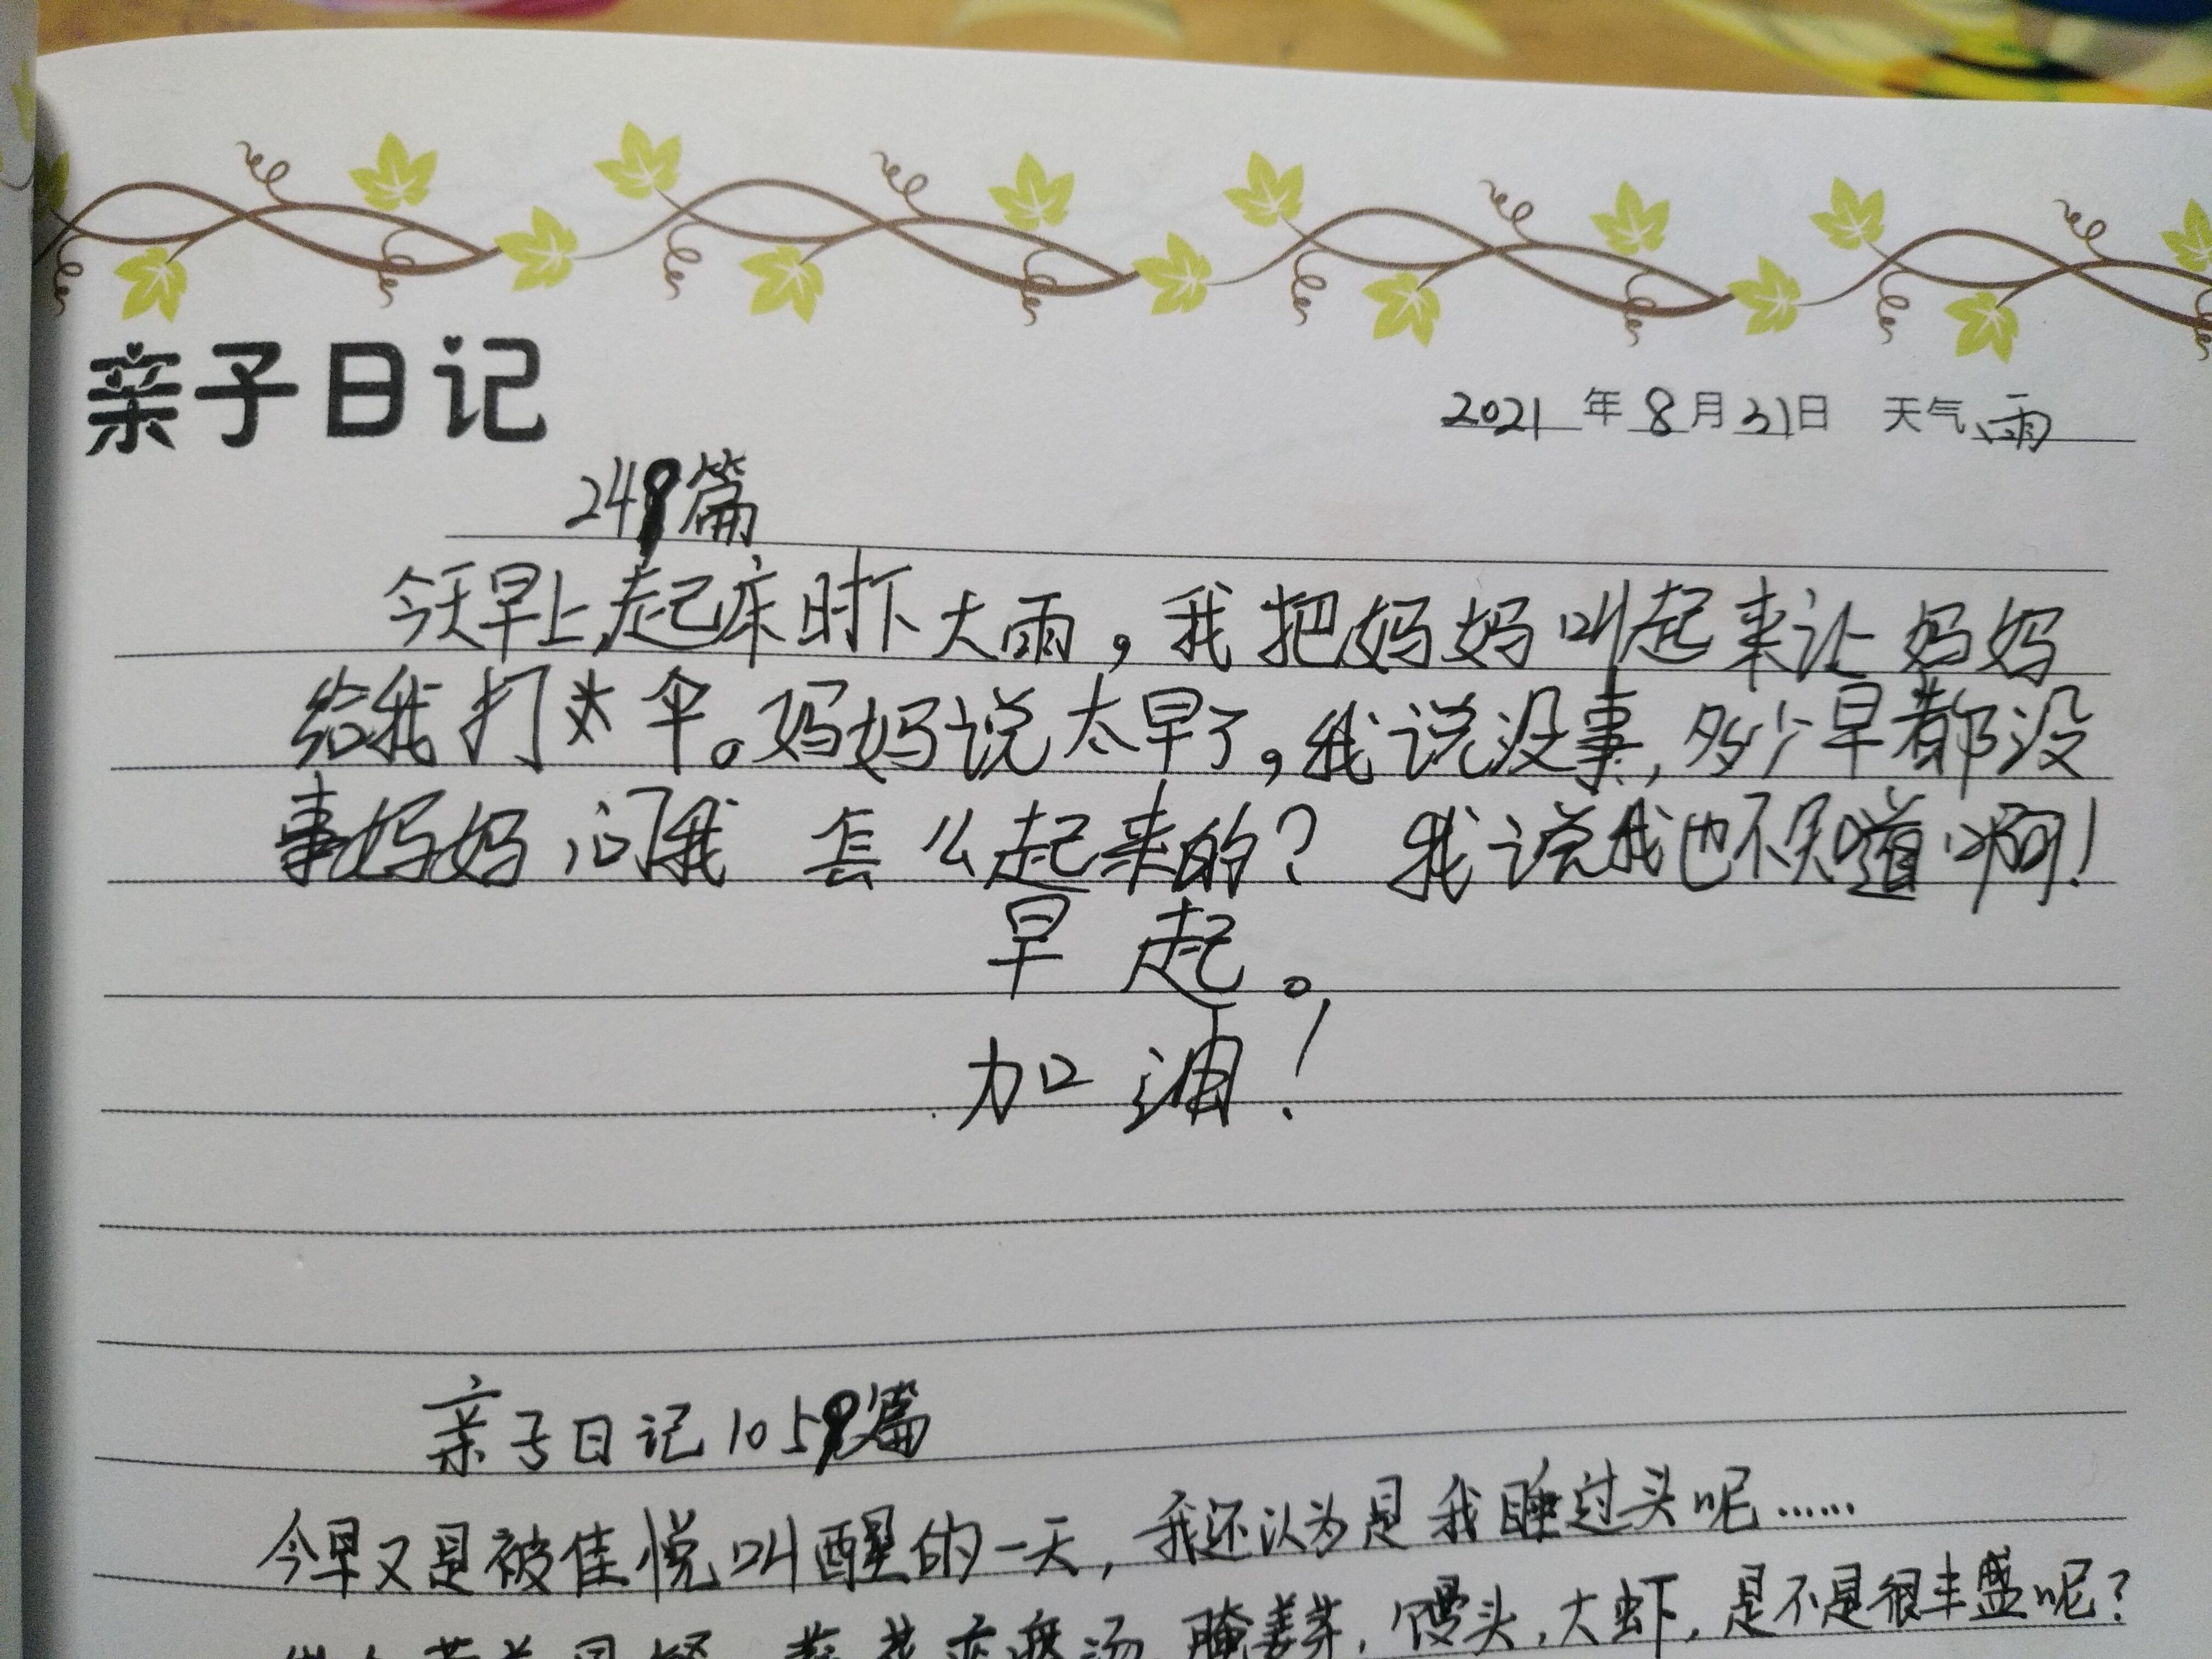 亲子日记
2021年8月31日 天气 雨
249篇
今天早上,起床时下大雨,我把妈妈叫起来让妈妈
给我打伞。妈妈说太早了,我说没事,多少早都没
事妈妈问我怎么起来的?我说我也不知道啊!
早起。
加油!
亲子日记1059篇
今早又是被佳悦叫醒的一天,我还认为是我睡过头呢……
汤,腌姜芽,馒头,大虾,是不是很丰盛呢?